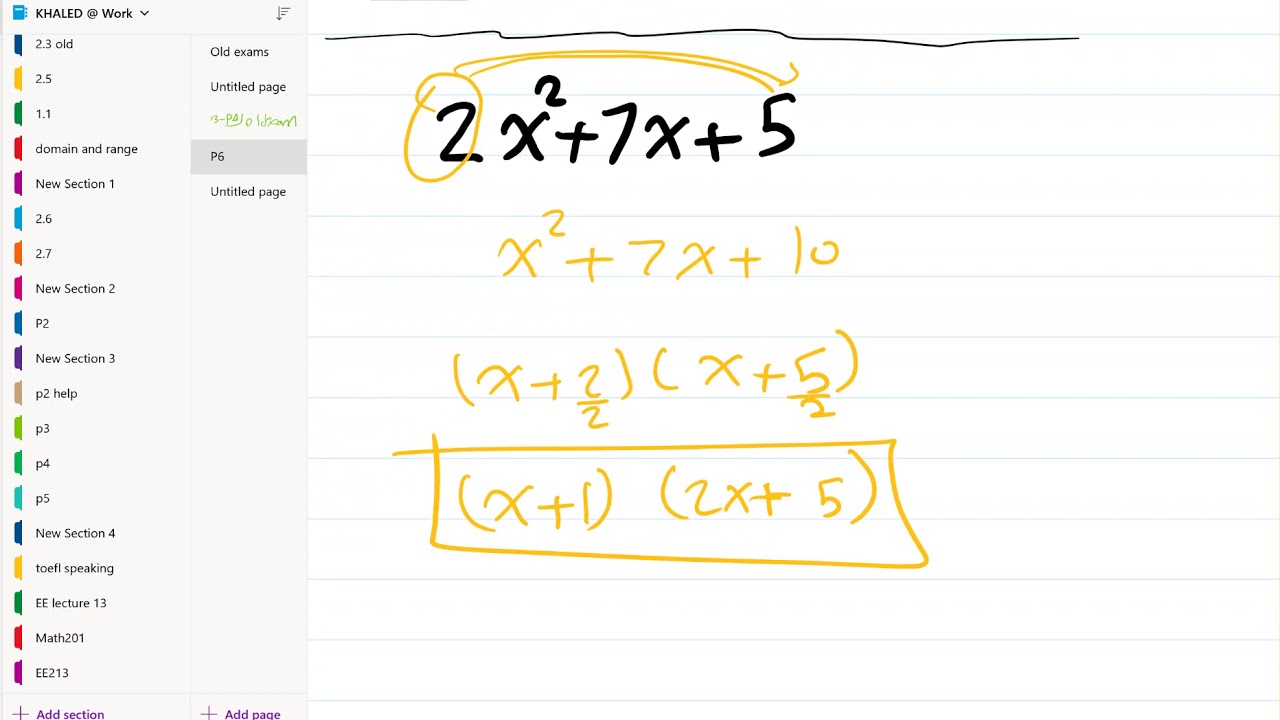 KHALED @ Work
2.3 old
2.5
1.1
domain and range
New Section 1
2.6
2.7
New Section 2
P2
New Section 3
p2 help
p3
p4
p5
New Section 4
toefl speaking
EE lecture 13
Math201
EE213
Add section
Old exams
Untitled page
old exam
P6
Untitled page
Add page
2x²+7x+5
x²+7x+10
(x+2/2)(x+5/2)
(x+1) (2x+5)